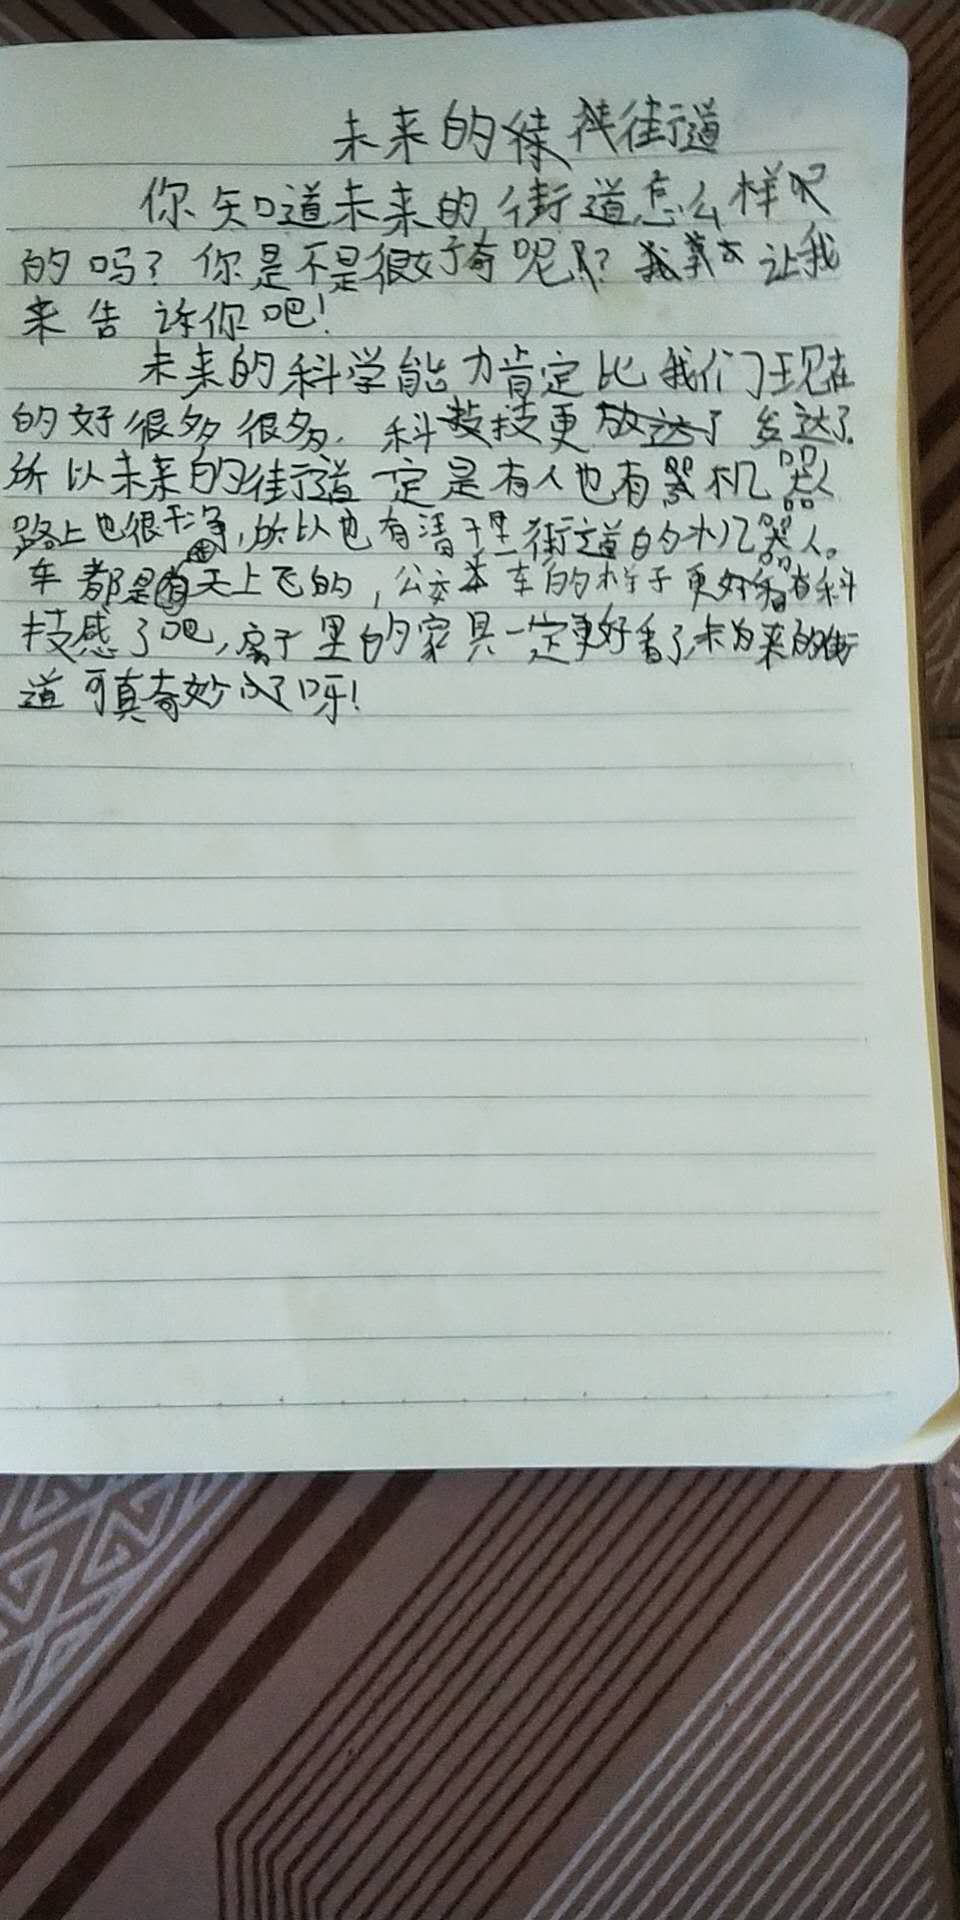 未来的街道
你知道未来的街道怎么样
的吗？你是不是很好奇呢？让我
来告诉你吧！
未来的科学能力肯定比我们现在
的好很多很多，科技更发达了
所以未来的街道一定是有人也有机器人
路上也很干净，所以也有清干里街道的机器人。
车都是在天上飞的，公交车的样子更好看有科
技感了吧，房子里的家具一定更好看了，未来的街
道可真奇妙呀！